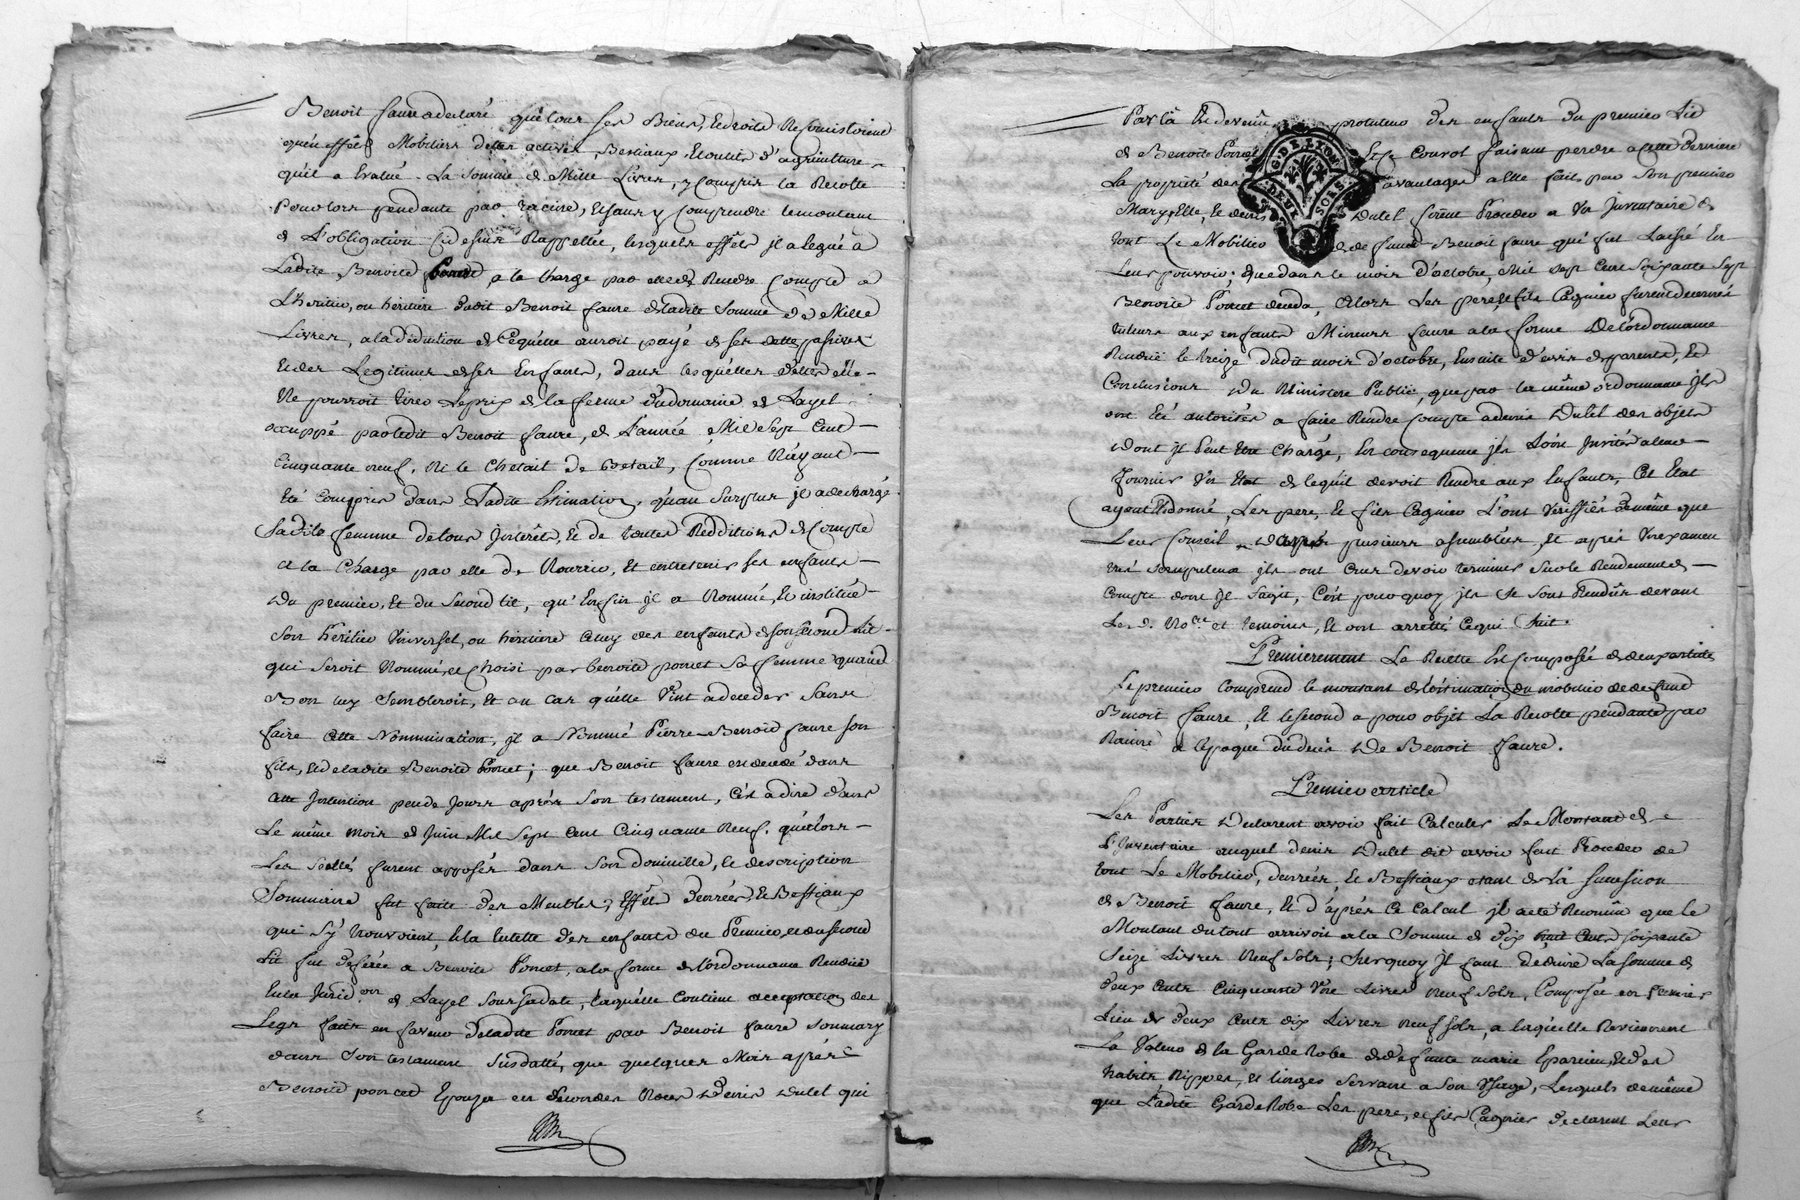 Benoit faure a declaré que tous ses Biens, et droits ne consistoient
qu'en effets Mobiliers dettes actives, Bestiaux, et outils d'agriculture
qu'il a Evalué La Somme de Mille Livres, y Compris la Recolte
Pour lors pendante par racine, et sans y Comprendre le montant
de L'obligation Cy dessus Rappellée, lesquels effets il a legué à
Ladite Benoite Poncet, a la Charge par elle de Rendre Compte a
L'heritier, ou heritiere dudit Benoit faure de ladite Somme de Mille
Livres, a la déduction de Ce qu'elle auroit payé de ses dettes passives
Et des Legitimes de ses Enfants, dans lesquelles dettes elle
Ne pourroit tirer Le prix de la ferme du domaine de Layel
occuppé par ledit Benoit faure, de L'année Mil Sept Cent
Cinquante neuf, Ni le Chetail de Betail, Comme N'ayant
Eté Compris dans Ladite Estimation, qu'au Surplus il a dechargé
Sadite femme de tous Interêts, Et de toutes Redditions de Compte
a la Charge par elle de Nourrir, Et entretenir ses enfants
Du premier, Et du Second lit, qu'Enfin il a Nommé, Et institué
Son heritier Universel, ou heritiere Celuy des enfants de son second Lit
qui Seroit Nommé, et Choisi par benoite poncet Sa femme quand
Bon luy Sembleroit, Et au Cas qu'elle Vint a deceder Sans
faire Cette Nommination, il a Nommé Pierre Benoit faure son
fils, Et de ladite Benoite Poncet; que Benoit faure est decedé dans
Cette Intention peu de Jours après Son testament, C'est a dire dans
Le même mois de Juin Mil Sept Cent Cinquante Neuf. qu'alors
Les Scellés furent apposés dans Son domicille, Et description
Sommaire fut faite des Meubles, Effets Denrées, Et Bestiaux
qui S'y trouvoient, Et la tutelle des enfants du Premier, et du second
Lit fut deferée a Benoite Poncet, a la forme de l'ordonnance Rendüe
En la Jurid.on de Layel Sous sa date, laquelle Contient acceptation des
Legs faits en faveur de ladite Poncet par Benoit faure Sommary
dans Son testament Susdatté, que quelques Mois après
Benoite poncet Epousa en Secondes Noces Denis Dulet qui
Par là Est devenu protuteur des enfants du premier Lit
de Benoite Poncet Et Ce Convol faisant perdre a Cette Derniere
La propriété des avantages a Elle faits par son premier
Mary, Elle, Et denis Dulet firent Proceder a Un Inventaire de
tout Le Mobilier de defunt Benoit faure qui fut Laissé En
Leur pouvoir: que dans le mois D'octobre, Mil Sept Cent Soixante Sept
Benoite Poncet deceda, Alors Les pere, et fils Cagnier furent decernés
tuteurs aux enfants Mineurs faure a la forme De l'ordonnance
Rendüe le treize dudit mois d'octobre, Ensuite d'avis de parents, Et
Conclusions Du Ministere Public, que par la même ordonnance ils
ont été autorisés a faire Rendre Compte a denis Dulet des objets
dont il Peut Etre Chargé, En consequence ils L'ont Invité a leur
fournir Un Etat de Ce qu'il devoit Rendre aux Enfants, Cet Etat
ayant Eté donné, Les pere, Et fils Cagnier L'ont Veriffiés de même que
Leur Conseil, Dans plusieurs assemblées, Et après Un examen
très Scrupuleux ils ont Crus devoir terminer Sur le Rendement de
Compte dont il S'agit, C'est pourquoy ils Se Sont Rendûs devant
Les d. No.res et temoins, Et ont arrettés Ce qui Suit.
Premierement La Recette Est Composée de deux parties
Le premier Comprend le montant de l'estimation du mobilier de defunt
Benoit faure, Et le second a pour objet La Recolte pendante par
Racine a l'epoque du decès De Benoit faure.
Premier article
Les Parties Declarent avoir fait Calculer Le Montant de
L'Inventaire auquel denis Dulet dit avoir fait Proceder de
tout Le Mobilier, denrées, Et Bestiaux etant de La Succession
de Benoit faure, Et d'après Ce Calcul il a eté Reconnû que le
Montant du tout arrivoit a la Somme de Dix huit Cents Soixante
Seize Livres Neuf Sols; Sur quoy il faut deduire La Somme de
deux Cents Cinquante Une Livres neuf sols, Composée en Premier
Lieu de deux Cents dix Livres neuf sols, a laquelle Reviennent
La Valeur de la Garde Robe de defunte marie Eparcieu, Et des
habits Nippes, Et linges Servant a Son Usage, Lesquels de même
que Ladite Garde Robe Les pere, et fils Cagnier declarent Leur
G. DE LYON
DEUX SOLS